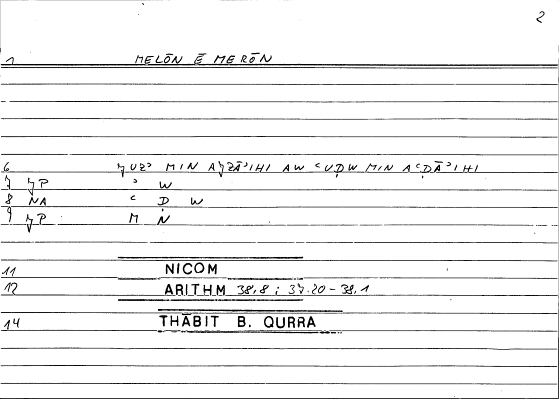 2
1 MELŌN Ē MERŌN
6 ǧUZʾ MIN AǧZĀʾIHI AW ʿUḌW MIN AʿḌĀʾIHI
7 ʾ W
8 NA ʿ Ḍ W
9 M N
11 NICOM
12 ARITHM 38,8 ; 37.20 - 38,1
14 THĀBIT B. QURRA